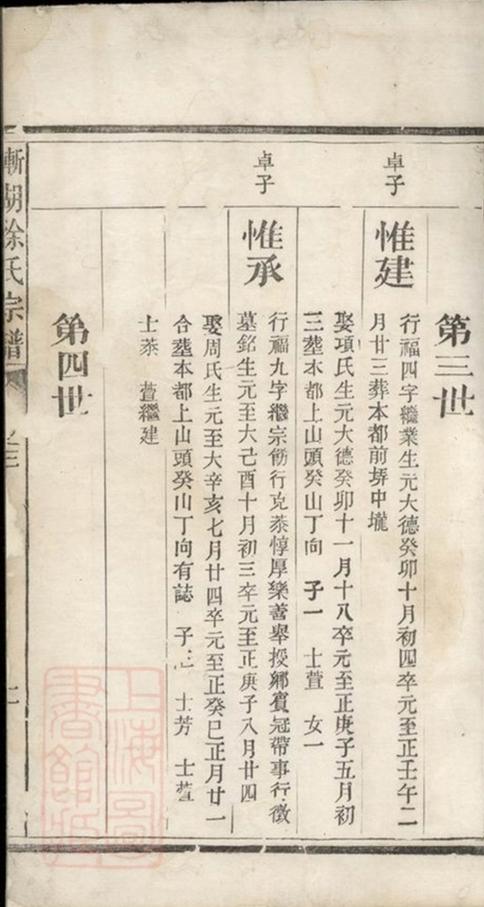 第三世
卓子
惟建
行福四字繼業生元大德癸卯十月初四卒元至正壬午二
月廿三葬本都前塝中壠
娶項氏生元大德癸卯十一月十八卒元至正庚子五月初
三塟本都上山頭癸山丁向 子一 士萱 女一
卓子
惟承
行福九字繼宗飭行克恭惇厚樂善舉授鄉賓冠帶事行徵
墓銘生元至大己酉十月初三卒元至正庚子八月廿四
娶周氏生元至大辛亥七月廿四卒元至正癸巳正月廿一
合塟本都上山頭癸山丁向有誌 子三 士芳 士萱
士恭 萱繼建
第四世
漸湖徐氏宗譜
卷之三
二
上海圖書館藏